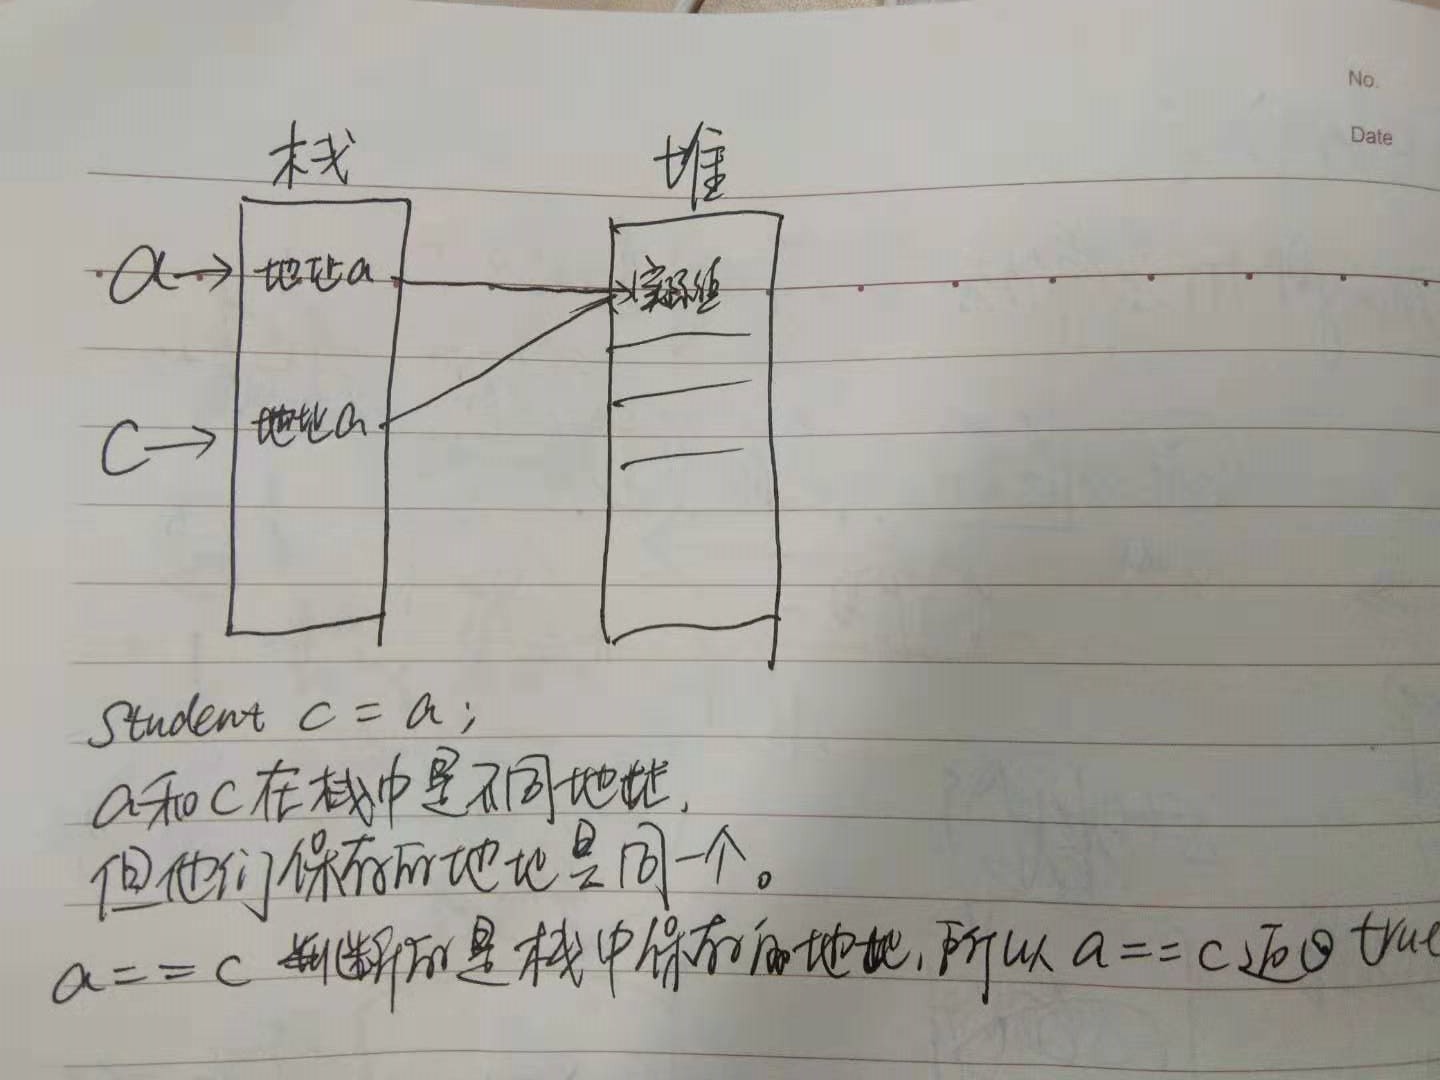 No.
Date
栈 堆
a 地址a 实际值
C 地址a
Student c = a;
a和c在栈中是不同地址,
但他们保存的地址是同一个。
a==c 判断的是栈中保存的地址,所以 a==c返回true